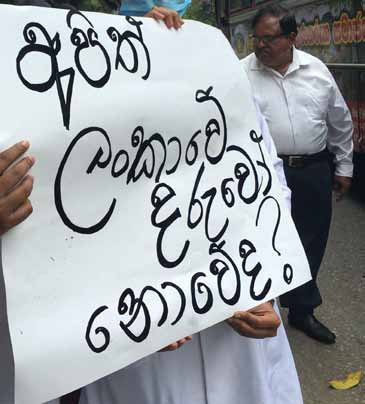 අපිත්
ලංකාවේ
දරුවෝ
නොවේද?